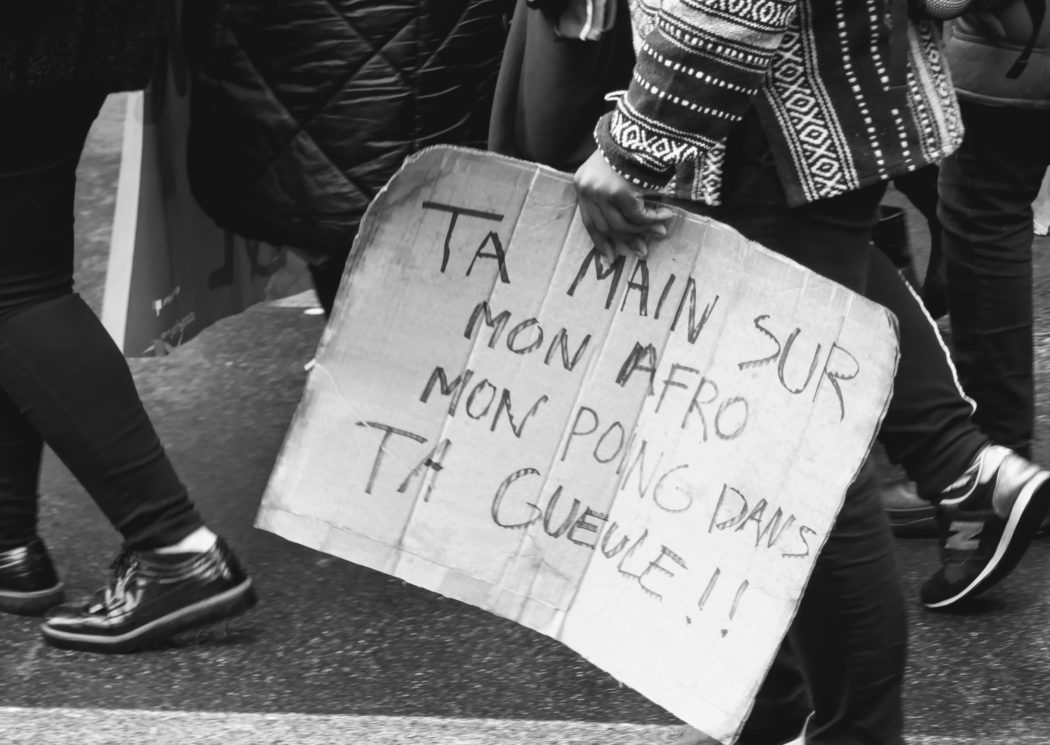 TA MAIN SUR
MON AFRO
MON POING DANS
TA GUEULE !!
N